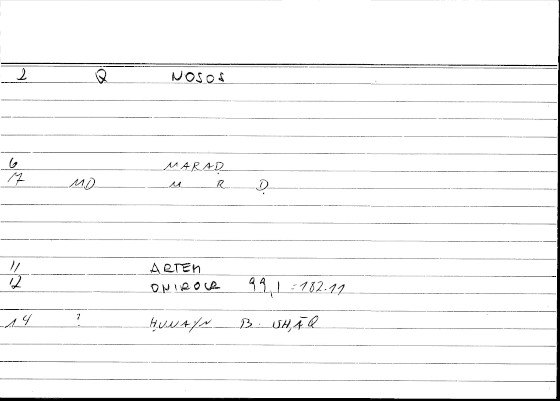 2 Q NOSOS
6 MARAḌ
7 MD M R Ḍ
11 ARTEM
12 ONIROCR 99,1 = 182.11
14 ? ḤUNAYN B. ISḤĀQ